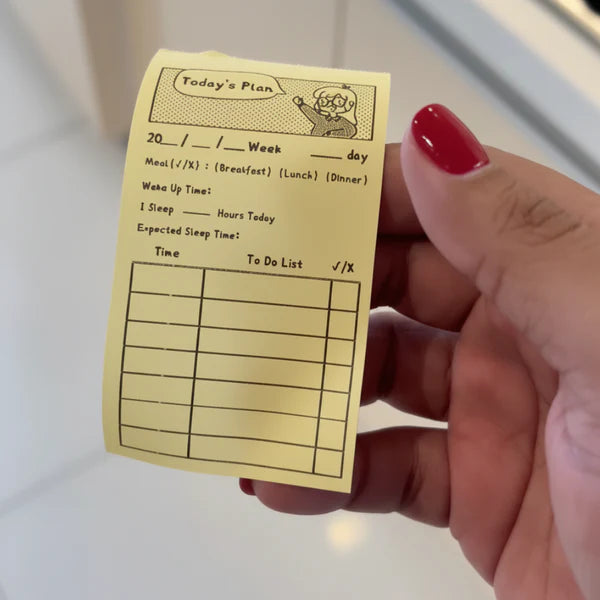 Today's Plan
20__/__/__ Week ____ day
Meal(✓/X) : (Breakfest) (Lunch) (Dinner)
Weke Up Time:
I Sleep ____ Hours Today
Expected Sleep Time:
Time To Do List ✓/X